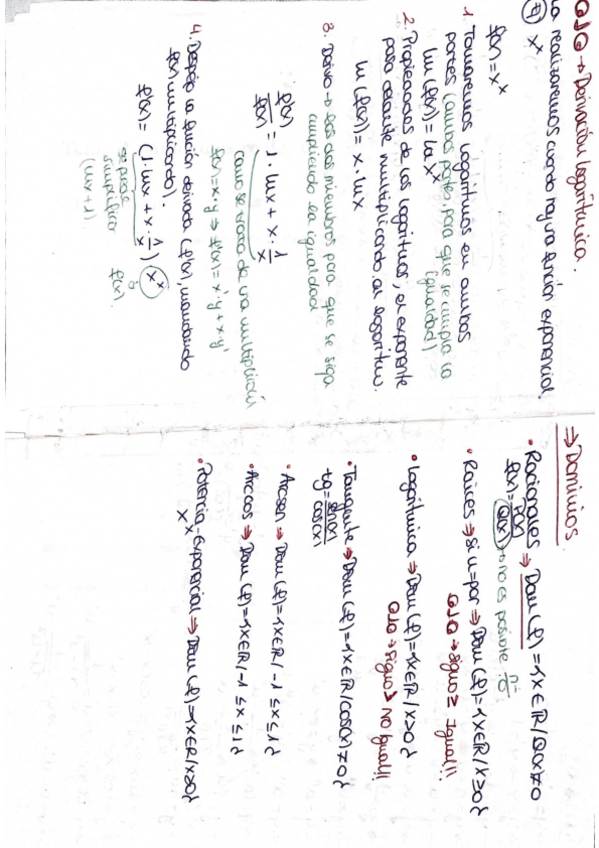 OJO → Derivación logarítmica.
La realizaremos cuando haya una función exponencial.
x^x
f(x) = x^x
1. Tomaremos logaritmos en ambos
partes (ambas partes, para que se cumpla la
igualdad)
ln (f(x)) = ln x^x
2. Propiedades de los logaritmos, el exponente
pasa delante multiplicando al logaritmo.
ln (f(x)) = x · ln x
3. Derivo → los dos miembros para que se siga
cumpliendo la igualdad
f'(x)/f(x) = 1 · ln x + x · 1/x
como se trata de una multiplicación
f(x) = x · y ⇒ f'(x) = x' y + x · y'
4. Despejo la función derivada (f'(x), mandando
f(x) multiplicando).
f'(x) = (1 · ln x + x · 1/x) x^x
se puede
simplificar
(ln x + 1)
f(x).
⇒ Dominios.
• Racionales ⇒ Dom (f) = {x ∈ ℝ / Q(x) ≠ 0
f(x) = P(x)/Q(x) → no es posible n/0
• Raíces ⇒ si n = par ⇒ Dom (f) = {x ∈ ℝ / x ≥ 0}
OJO → signo ≥ Igual!!
• Logarítmica ⇒ Dom (f) = {x ∈ ℝ / x > 0}
OJO → signo > no Igual!!
• Tangente ⇒ Dom (f) = {x ∈ ℝ / cos(x) ≠ 0}
tg = sen(x)/cos(x)
• Arcsen ⇒ Dom (f) = {x ∈ ℝ / -1 ≤ x ≤ 1}
• Arccos ⇒ Dom (f) = {x ∈ ℝ / -1 ≤ x ≤ 1}
• Potencia-Exponencial ⇒ Dom (f) = {x ∈ ℝ / x > 0}
x^x